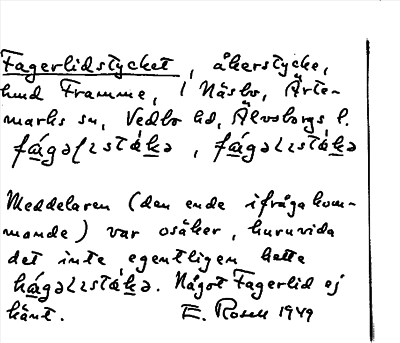 Fagerlidstycket, åkerstycke,
hmd Framme, 1 Näsbo, Ärte-
marks sn, Vedbo hd, Älvsborgs l.
fágəlıstákə, fágəLıstákə
Meddelaren (den ende ifrågakom-
mande) var osäker, huruvida
det inte egentligen hette
hágəLıstákə. Något Fagerlid ej
känt. E. Rosell 1949